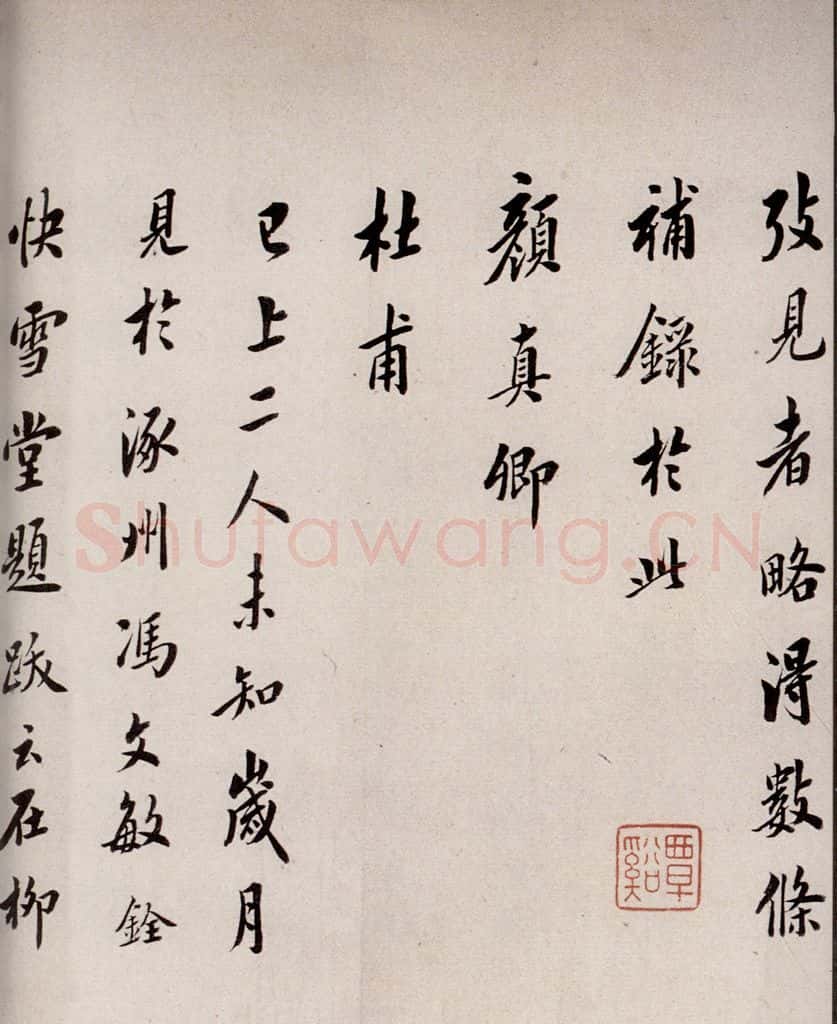 攷見者略得數條
補錄於此
顏真卿
杜甫
已上二人未知歲月
見於涿州馮文敏銓
快雪堂題跋云在柳
覃谿
Shufawang.CN